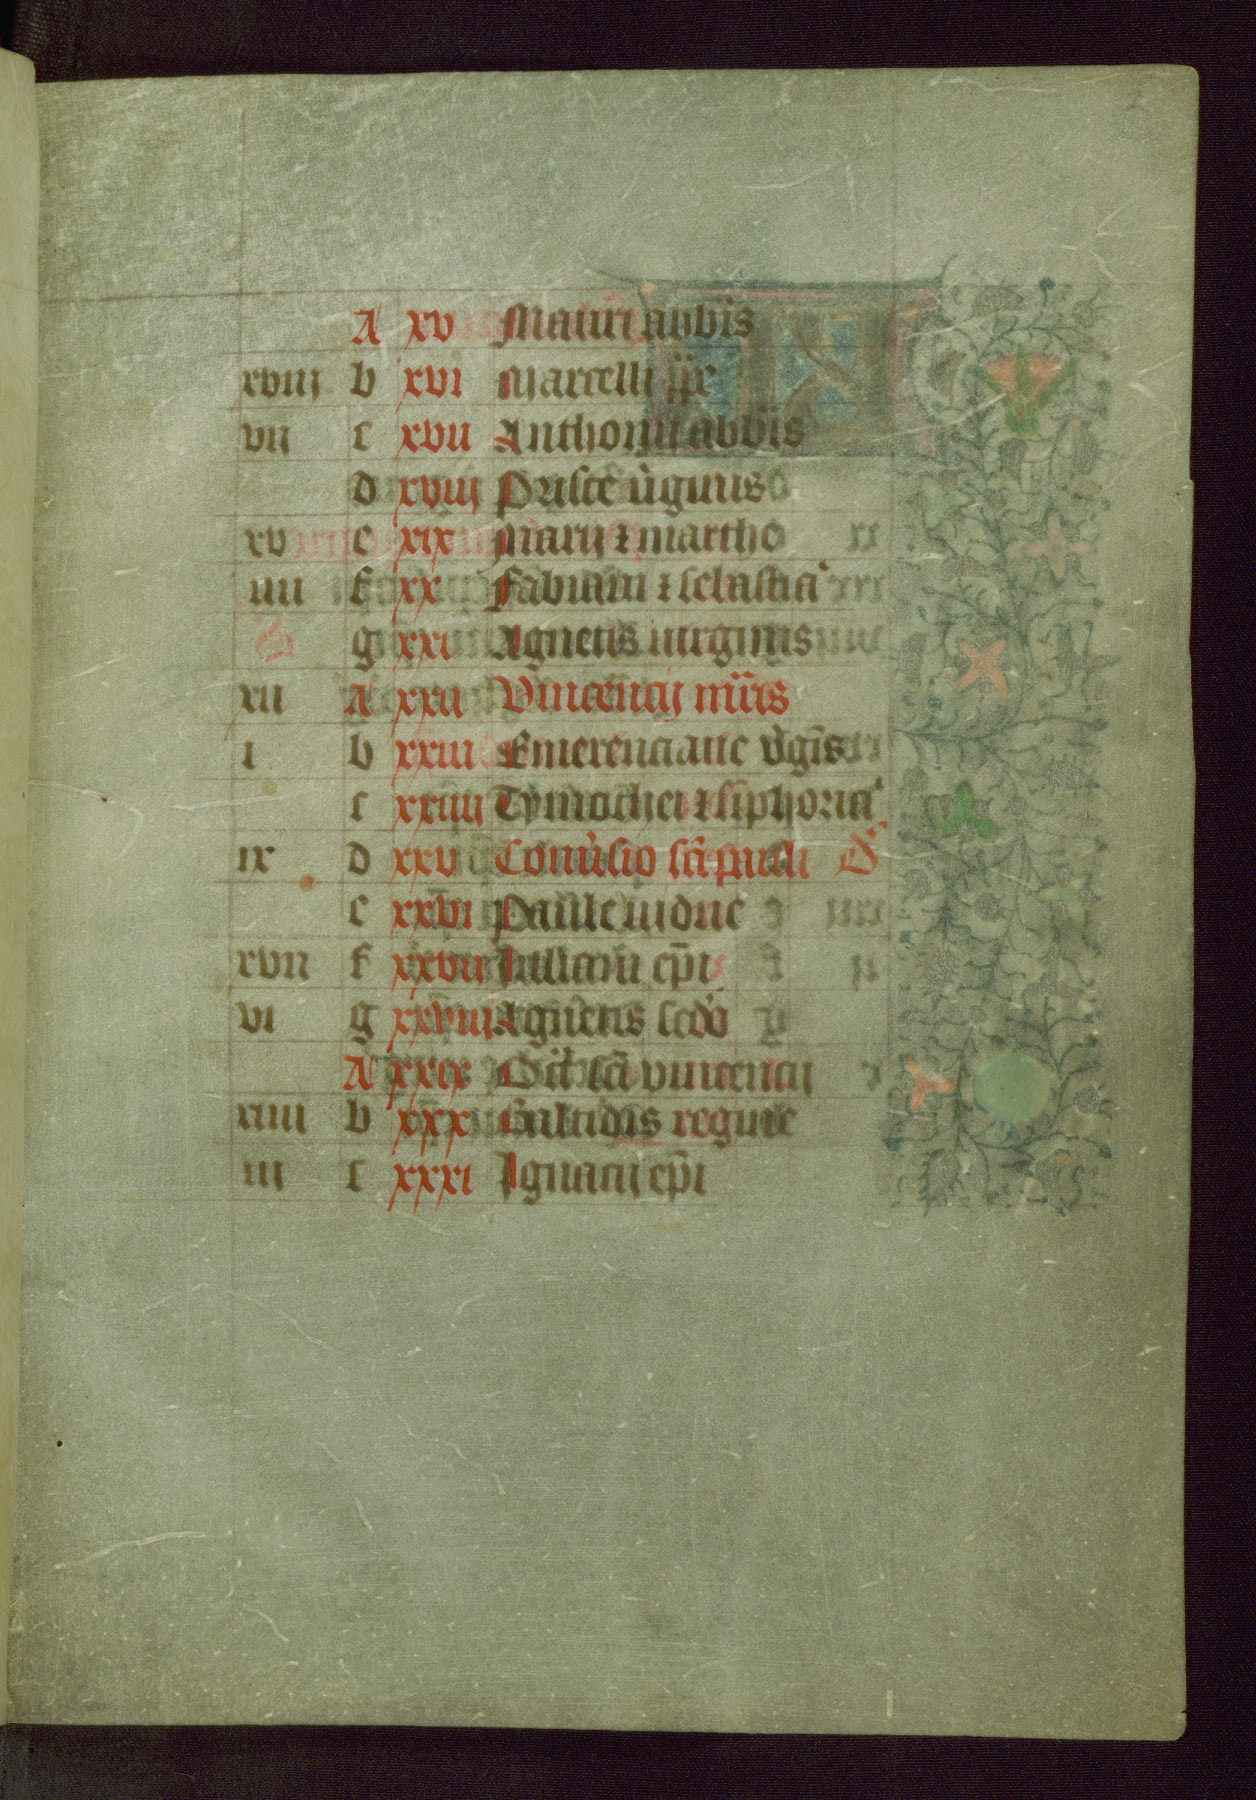 A xv Mauri abbis
xviij b xvi Marcelli pp̄e
vij c xvii Anthonij abb̄is
d xviij Prisce v̓ginis
xv e xix Marij ⁊ marthe
iiii f xx Fabiani ⁊ sebastia̓
g xxi Agnetis virginis
xii A xxii Vincencij mr̄is
i b xxiii Emerenciane v̓gīs
c xxiiij Tymothei ⁊
ix d xxv Conu̓sio sc̄i pauli d̓
e xxvi Paule vidue
xvii f xxvii Juliani ep̄i
vi g xxviij Agnetis sc̄do
A xxix Oct̄ sc̄i vincencij
xiiii b xxx regine
iij c xxxi Ignacij ep̄i